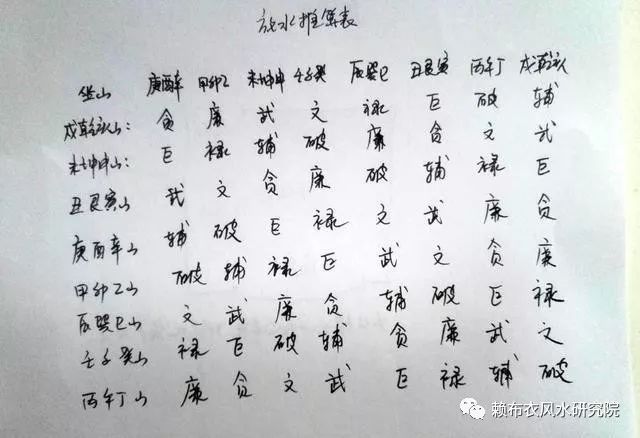 放水推算表
坐山 庚酉辛 甲卯乙 未坤申 壬子癸 辰巽巳 丑艮寅 丙午丁 戌乾亥
戌乾亥山: 贪 廉 武 文 禄 巨 破 辅
未坤申山: 巨 禄 辅 破 廉 贪 文 武
丑艮寅山 武 文 贪 廉 破 辅 禄 巨
庚酉辛山 辅 破 巨 禄 文 武 廉 贪
甲卯乙山 破 辅 禄 巨 武 文 贪 廉
辰巽巳山 文 武 廉 贪 辅 破 巨 禄
壬子癸山 禄 巨 破 辅 贪 廉 武 文
丙午丁山 廉 贪 文 武 巨 禄 辅 破
赖布衣风水研究院